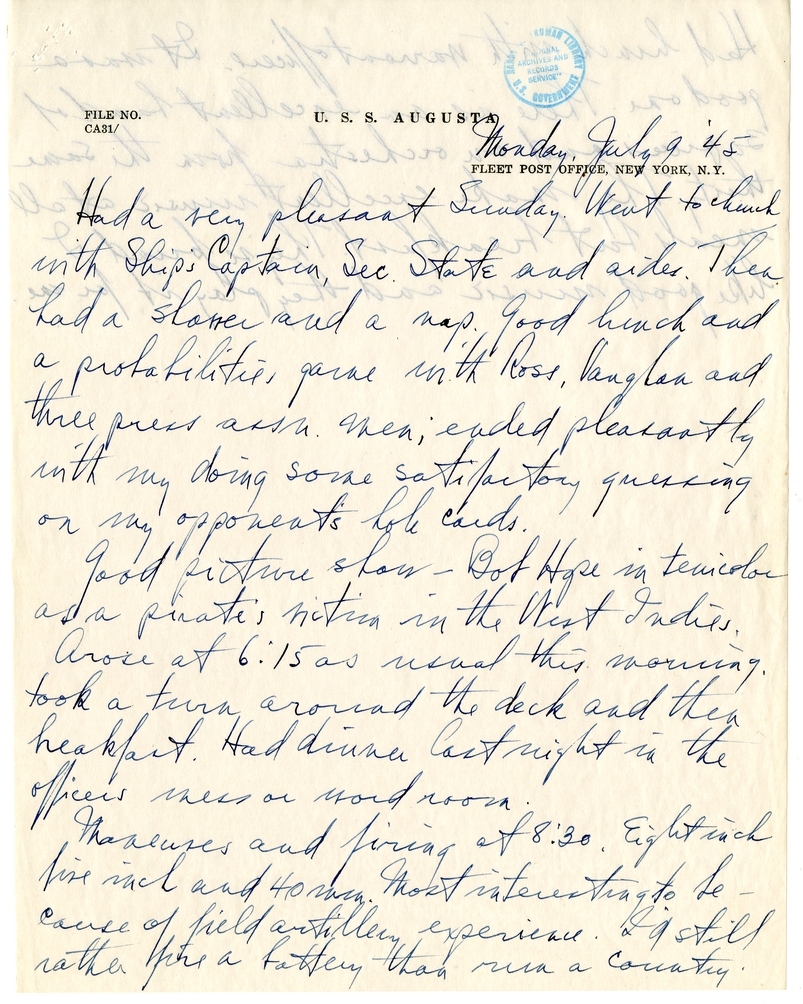 HARRY S. TRUMAN LIBRARY
"NATIONAL
ARCHIVES AND
RECORDS
SERVICE"
U.S. GOVERNMENT
FILE NO.
CA31/
U. S. S. AUGUSTA
Monday, July 9 '45
FLEET POST OFFICE, NEW YORK, N. Y.
Had a very pleasant Sunday. Went to church
with Ship's Captain, Sec. State and aides. Then
had a shower and a nap. Good lunch and
a probabilities game with Ross, Vaughan and
three press assn. men; ended pleasantly
with my doing some satifactory guessing
on my opponent's hole cards.
Good picture show – Bob Hope in tenicolor
as a pirate's victim in the West Indies.
Arose at 6:15 as usual this morning.
took a turn around the deck and then
breakfast. Had dinner last night in the
officers mess or word room.
Maneuves and firing at 8:30. Eight inch
five inch and 40 mm. Most interesting to be-
cause of field artillery experience. I'd still
rather fire a battery than run a country.